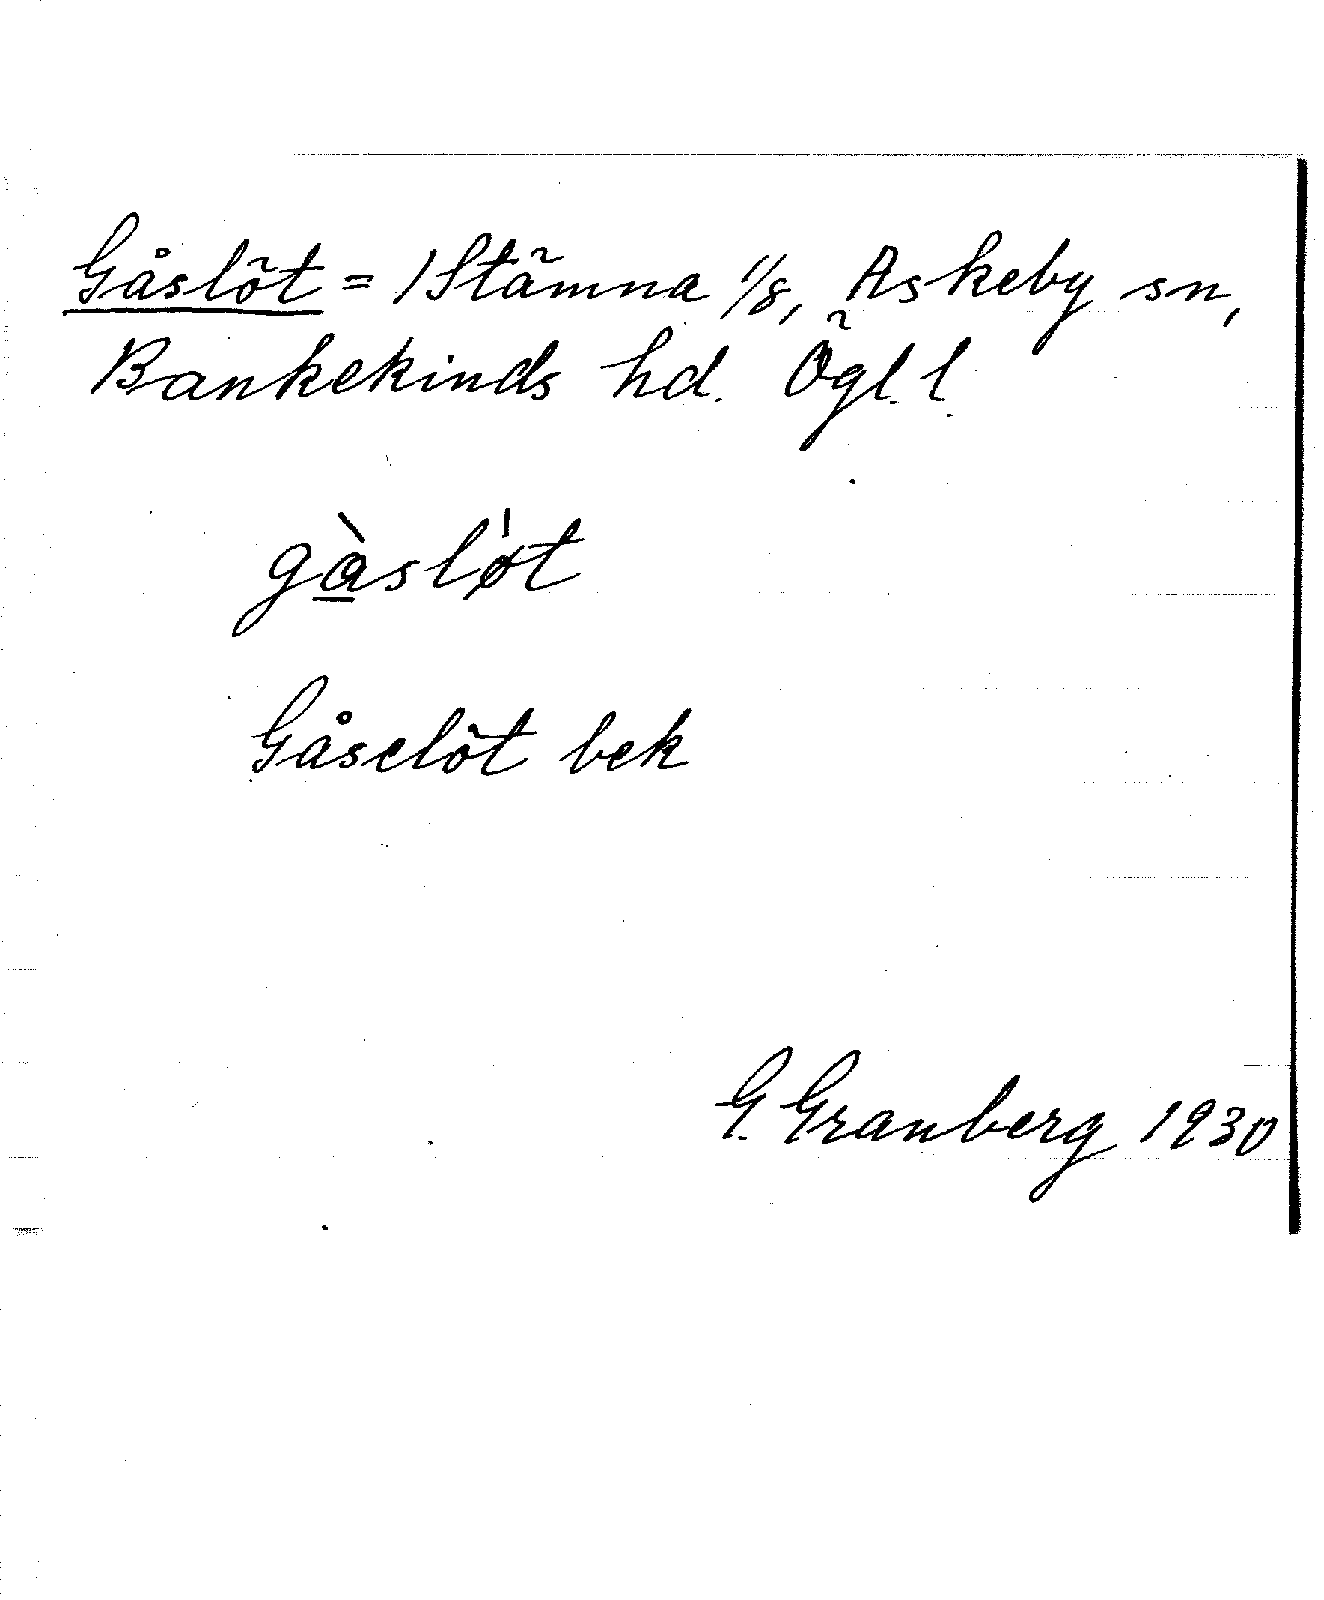 Gåslöt = /Stämna 1/8, Askeby sn,
Bankekinds hd. Ögl. l.
gàsløt
Gåselöt bek
G. Granberg 1930